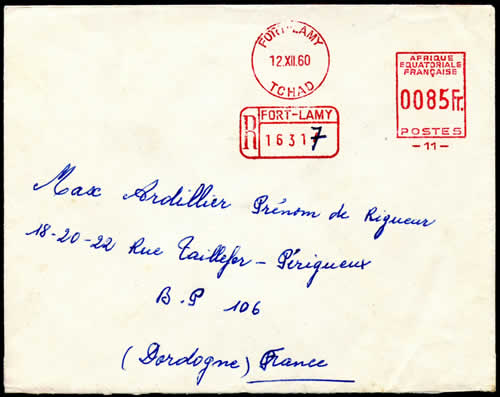 FORT-LAMY
12.XII.60
TCHAD
AFRIQUE
EQUATORIALE
FRANÇAISE
0085Fr.
POSTES
-11-
R FORT-LAMY
16317
Max Ardillier Prénom de Rigueur
18-20-22 Rue Taillefer - Périgueux
B.P 106
(Dordogne) France